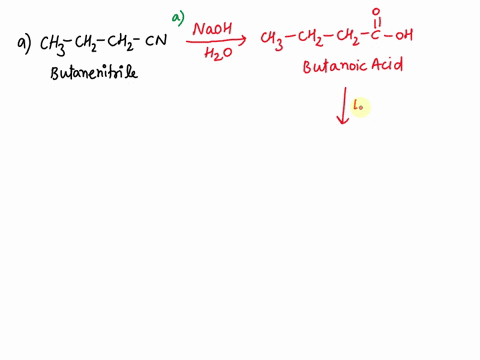 a)
a) CH3-CH2-CH2-CN NaOH CH3-CH2-CH2-C-OH
O
H2O
Butanenitrile
Butanoic Acid
L